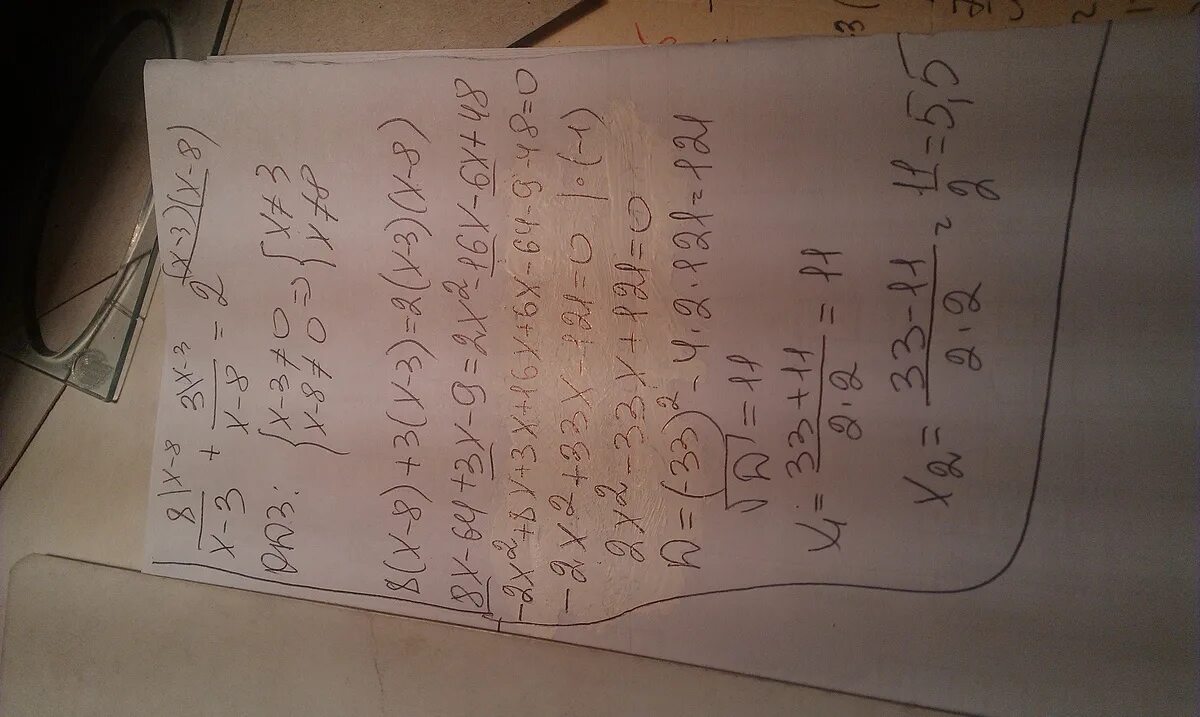 8 |x-8 / x-3 + 3 |x-3 / x-8 = 2 |(x-3)(x-8)
ОДЗ: { x-3≠0 x-8≠0 => { x≠3 x≠8
8(x-8)+3(x-3)=2(x-3)(x-8)
8x-64+3x-9=2x²-16x-6x+48
-2x²+8x+3x+16x+6x-64-9-48=0
-2x²+33x-121=0 |·(-1)
2x²-33x+121=0
D=(-33)²-4·2·121=121
√D=11
x₁= (33+11) / (2·2) =11
x₂= (33-11) / (2·2) = 11/2 =5,5